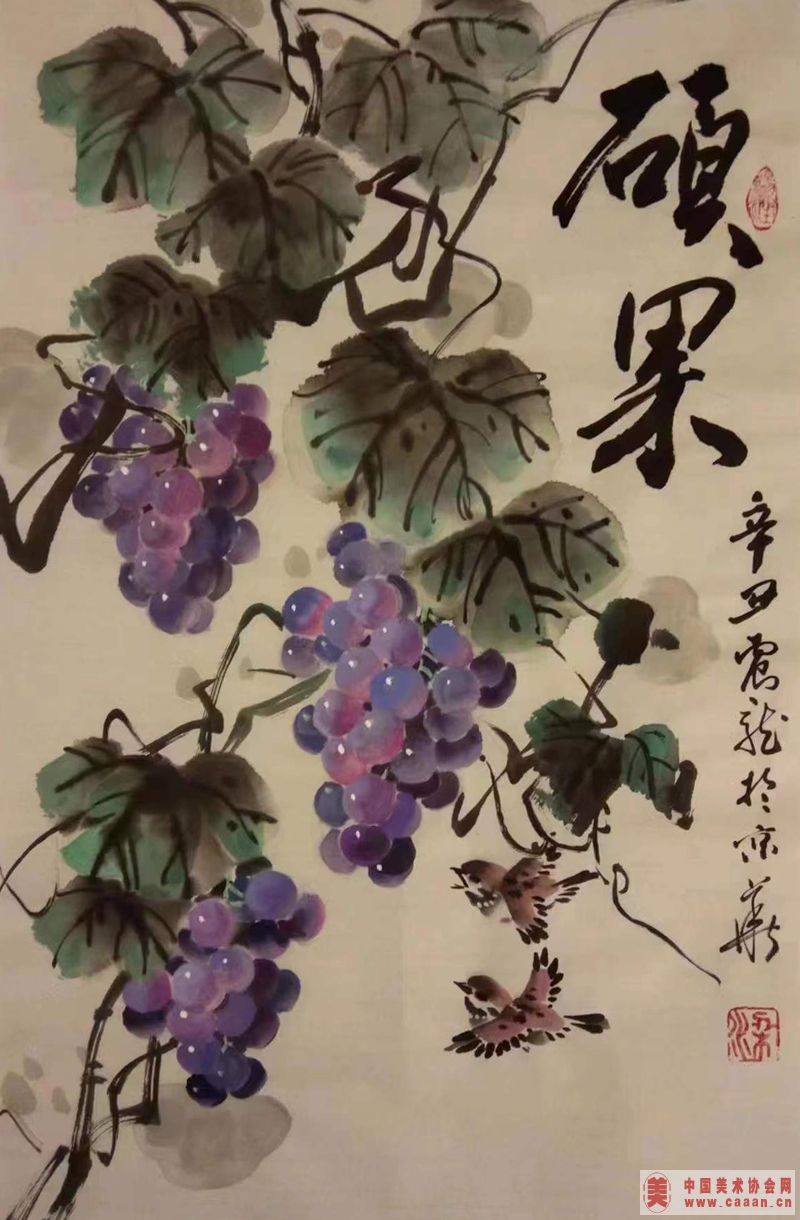 硕果
辛丑霄龙於京华
梁
中国美术协会网
www.caaan.cn